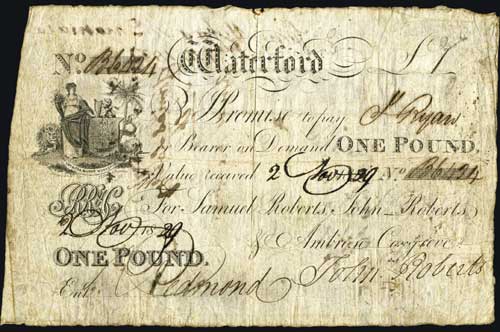 No. B6424 Waterford £1
I Promise to pay J. Ryan
or Bearer on Demand ONE POUND.
Value received 2 Nov. 1829 No. B6424
For Samuel Roberts, John Roberts,
2 Nov. 1829 & Ambrose
ONE POUND. John Roberts
Entd. Redmond